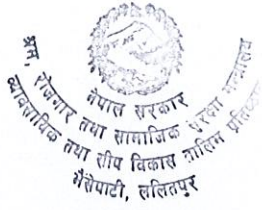 नेपाल सरकार
श्रम, रोजगार तथा सामाजिक सुरक्षा मन्त्रालय
व्यावसायिक तथा सीप विकास तालिम
भैसेपाटी, ललितपुर